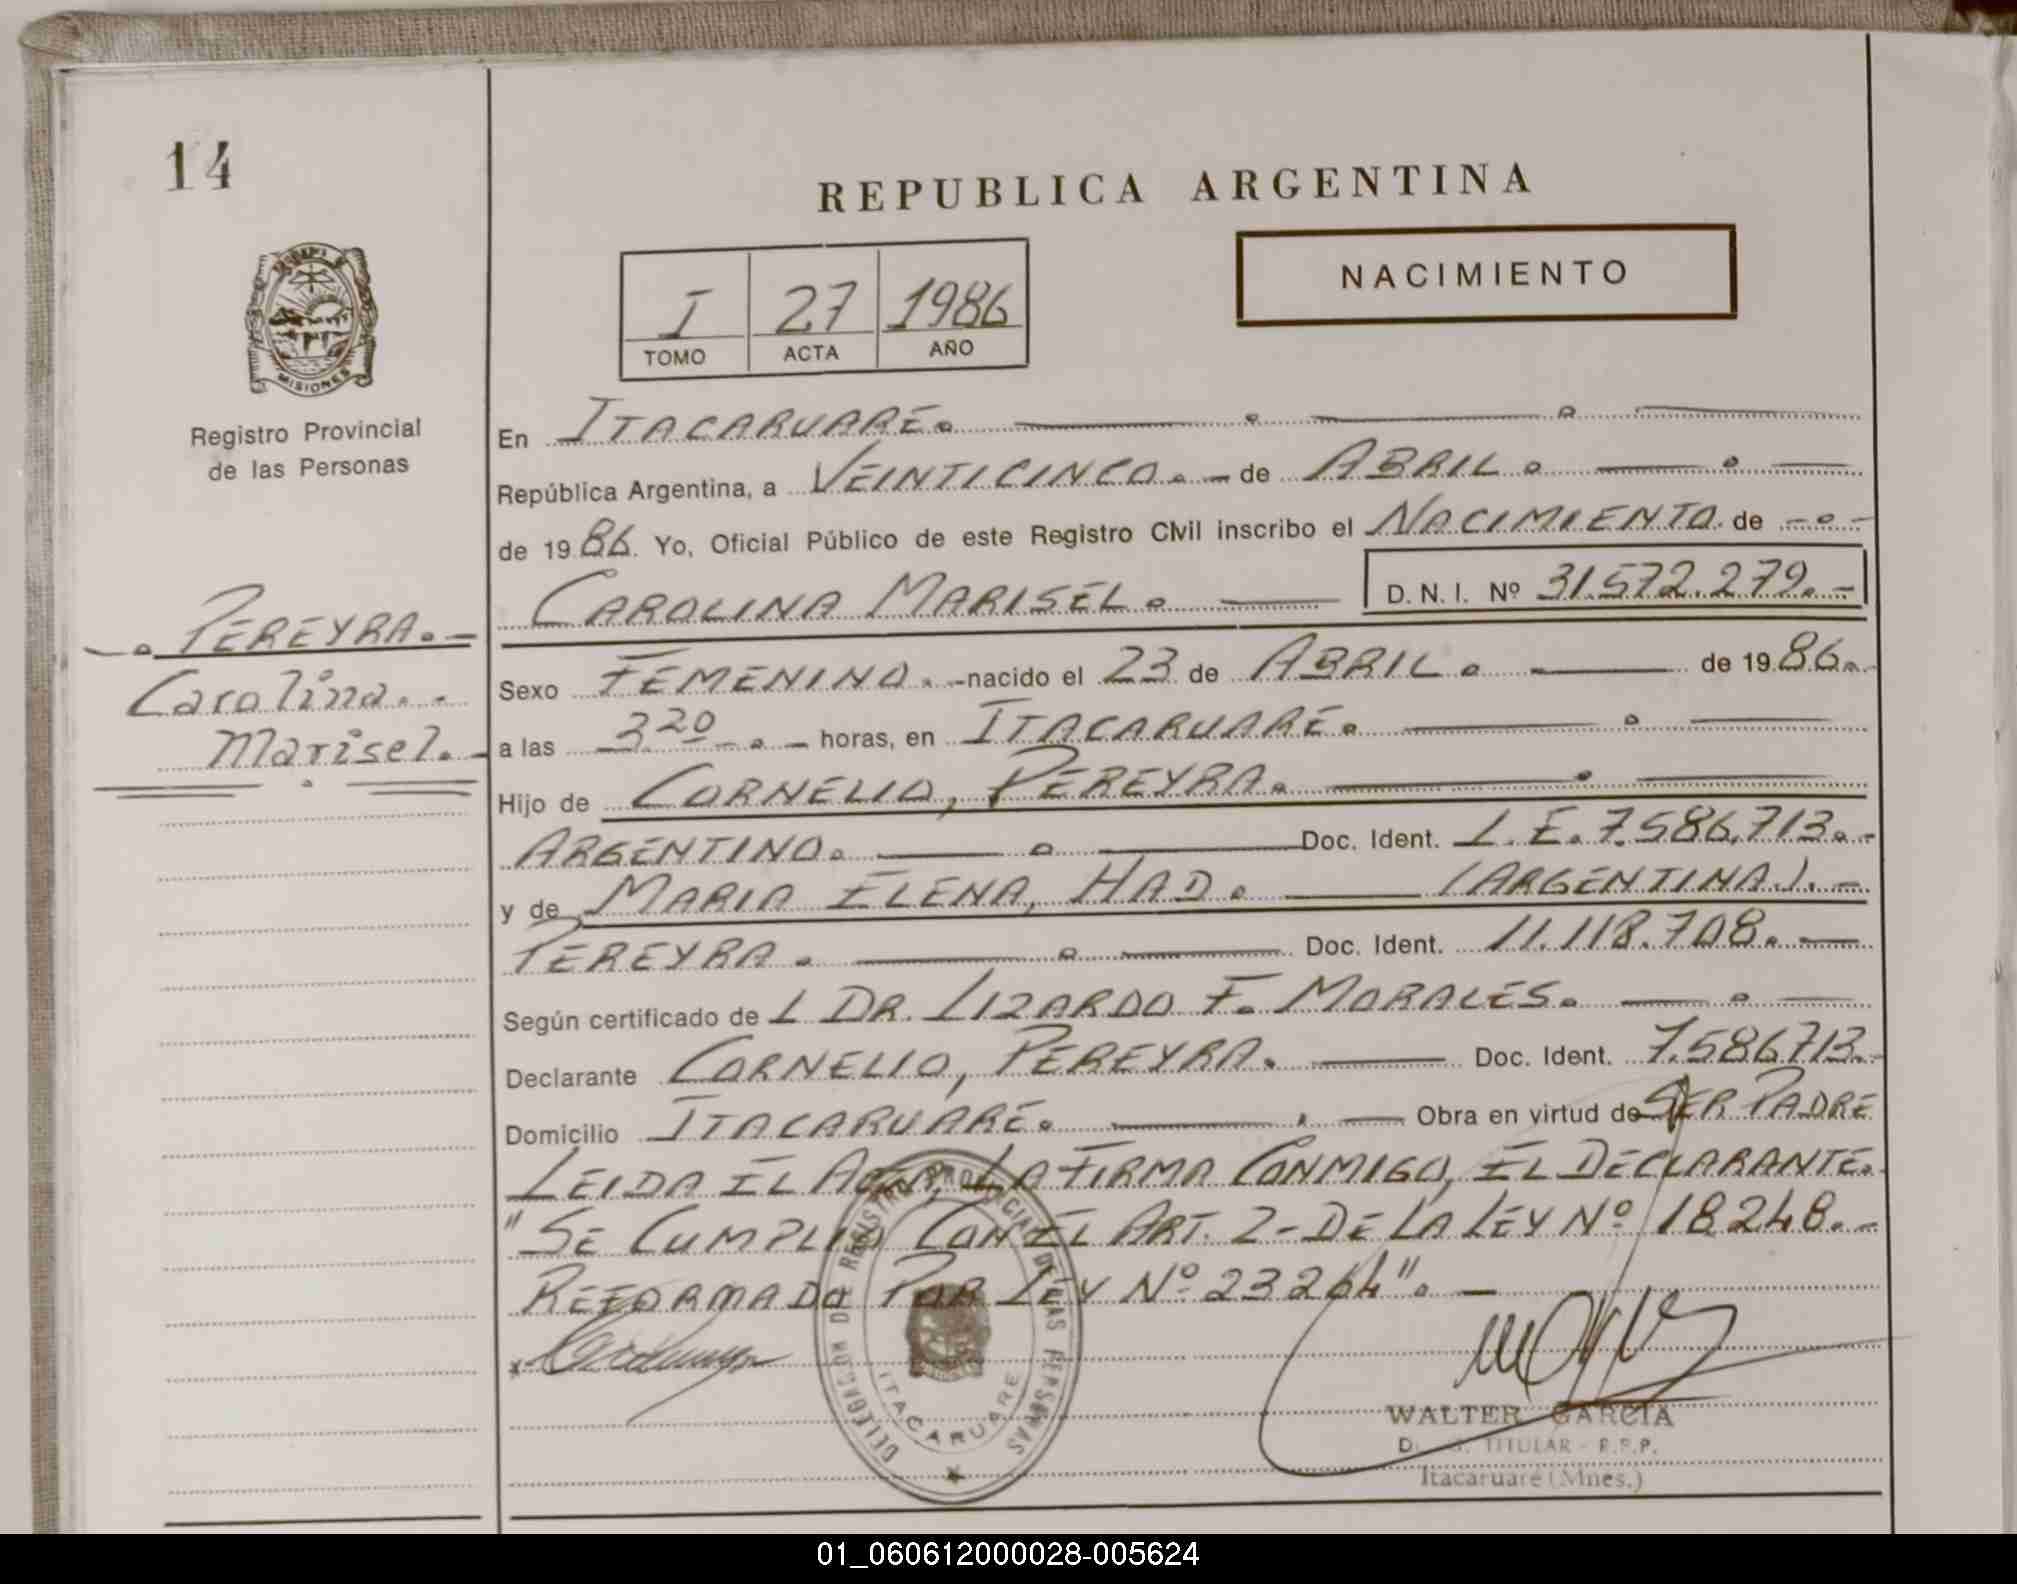 14
REPUBLICA ARGENTINA
NACIMIENTO
I 27 1986
TOMO ACTA AÑO
MISIONES
Registro Provincial
de las Personas
PEREYRA.-
Carolina.-
Marisel.-
En ITACARUARÉ.
República Argentina, a VEINTICINCO.- de ABRIL.
de 1986. Yo, Oficial Público de este Registro Civil inscribo el NACIMIENTO de
CAROLINA MARISEL. D. N. I. Nº 31.572.279.-
Sexo FEMENINO.- nacido el 23 de ABRIL. de 1986.-
a las 3 20 .- horas, en ITACARUARÉ.
Hijo de CORNELIO, PEREYRA.
ARGENTINO. Doc. Ident. L.E. 7.586.713.-
y de MARIA ELENA, HAD. (ARGENTINA).-
PEREYRA. Doc. Ident. 11.118.708.-
Según certificado de L DR. LIZARDO F. MORALES.
Declarante CORNELIO, PEREYRA. Doc. Ident. 7.586713.-
Domicilio ITACARUARÉ. Obra en virtud de SER PADRE
LEIDA EL ACTA, LA FIRMA CONMIGO, EL DECLARANTE.
"SE CUMPLIO CON EL ART. 2- DE LA LEY Nº 18248.-
REFORMADO POR LEY Nº 23264".-
DELEGACION DE REGISTRO PROVINCIAL DE LAS PERSONAS
ITACARUARE
WALTER GARCIA
TITULAR - R.P.P.
Itacaruaré (Mnes.)
01_060612000028-005624